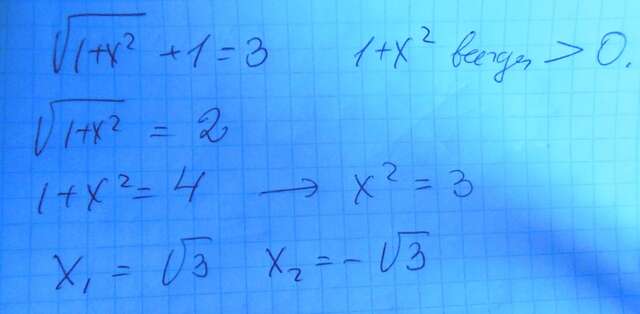 √(1+x²) + 1 = 3 1+x² всегда > 0.
√(1+x²) = 2
1+x² = 4 → x² = 3
x₁ = √3 x₂ = -√3